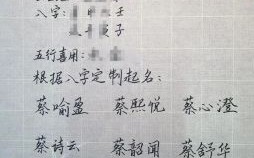 八字:
子
五行喜用:
根据八字定制起名:
蔡喻盈 蔡熙悦 蔡心澄
蔡诗云 蔡韶闻 蔡舒华